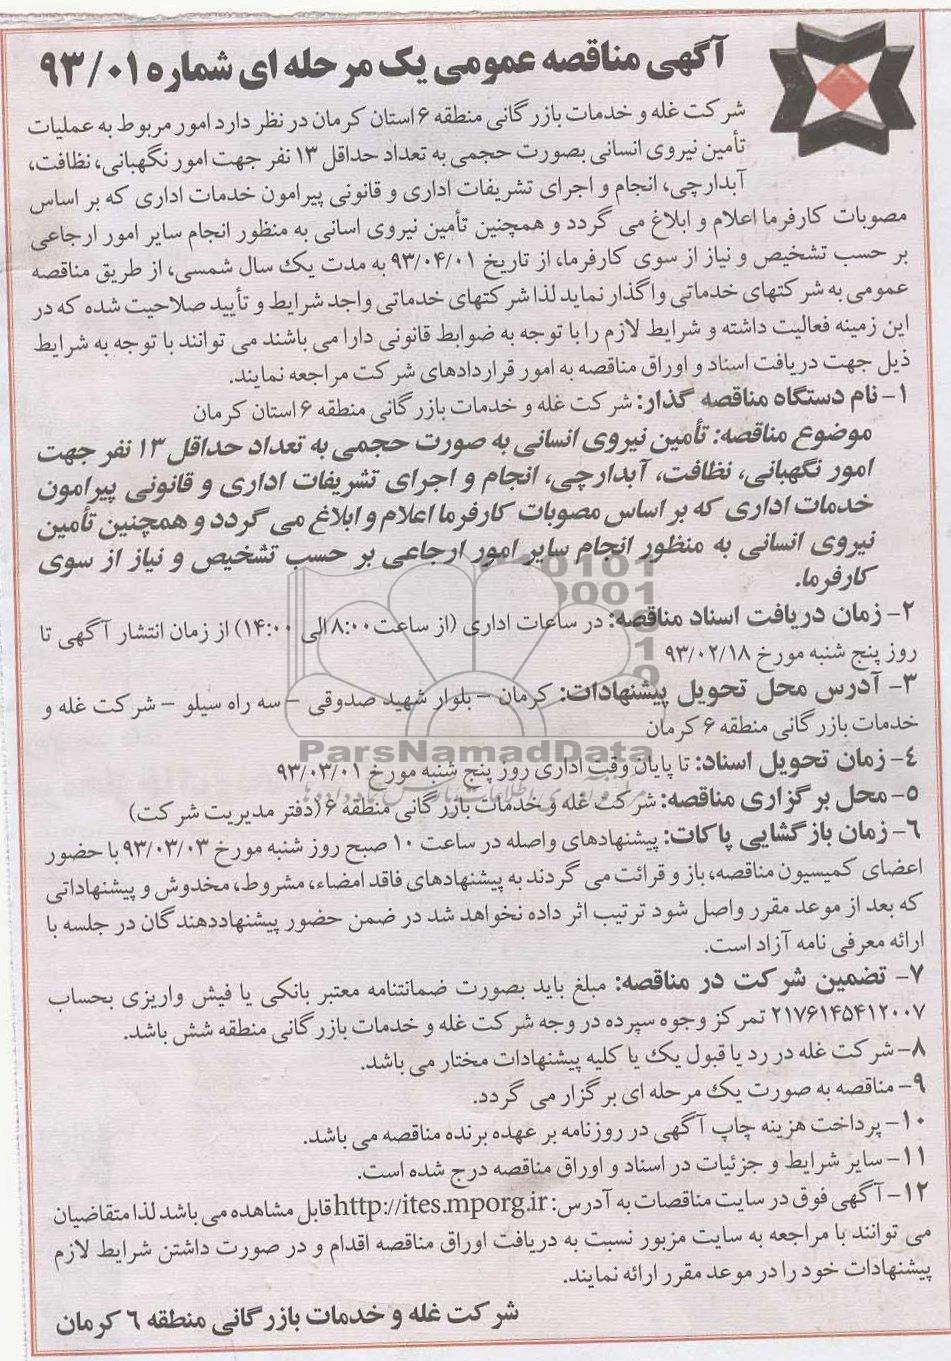 آگهی مناقصه عمومی یک مرحله ای شماره ۹۳/۰۱
شرکت غله و خدمات بازرگانی منطقه ۶ استان کرمان در نظر دارد امور مربوط به عملیات
تأمین نیروی انسانی بصورت حجمی به تعداد حداقل ۱۳ نفر جهت امور نگهبانی، نظافت،
آبدارچی، انجام و اجرای تشریفات اداری و قانونی پیرامون خدمات اداری که بر اساس
مصوبات کارفرما اعلام و ابلاغ می گردد و همچنین تأمین نیروی اسانی به منظور انجام سایر امور ارجاعی
بر حسب تشخیص و نیاز از سوی کارفرما، از تاریخ ۹۳/۰۴/۰۱ به مدت یک سال شمسی، از طریق مناقصه
عمومی به شرکتهای خدماتی واگذار نماید لذا شرکتهای خدماتی واجد شرایط و تأیید صلاحیت شده که در
این زمینه فعالیت داشته و شرایط لازم را با توجه به ضوابط قانونی دارا می باشند می توانند با توجه به شرایط
ذیل جهت دریافت اسناد و اوراق مناقصه به امور قراردادهای شرکت مراجعه نمایند.
۱- نام دستگاه مناقصه گذار: شرکت غله و خدمات بازرگانی منطقه ۶ استان کرمان
موضوع مناقصه: تأمین نیروی انسانی به صورت حجمی به تعداد حداقل ۱۳ نفر جهت
امور نگهبانی، نظافت، آبدارچی، انجام و اجرای تشریفات اداری و قانونی پیرامون
خدمات اداری که بر اساس مصوبات کارفرما اعلام و ابلاغ می گردد و همچنین تأمین
نیروی انسانی به منظور انجام سایر امور ارجاعی بر حسب تشخیص و نیاز از سوی
کارفرما.
۲- زمان دریافت اسناد مناقصه: در ساعات اداری (از ساعت ۸:۰۰ الی ۱۴:۰۰) از زمان انتشار آگهی تا
روز پنج شنبه مورخ ۹۳/۰۲/۱۸
۳- آدرس محل تحویل پیشنهادات: کرمان - بلوار شهید صدوقی - سه راه سیلو - شرکت غله و
خدمات بازرگانی منطقه ۶ کرمان
ParsNamadData
۴- زمان تحویل اسناد: تا پایان وقت اداری روز پنج شنبه مورخ ۹۳/۰۳/۰۱
۵- محل برگزاری مناقصه: شرکت غله و خدمات بازرگانی منطقه ۶ (دفتر مدیریت شرکت)
۶- زمان بازگشایی پاکات: پیشنهادهای واصله در ساعت ۱۰ صبح روز شنبه مورخ ۹۳/۰۳/۰۳ با حضور
اعضای کمیسیون مناقصه، باز و قرائت می گردند به پیشنهادهای فاقد امضاء، مشروط، مخدوش و پیشنهاداتی
که بعد از موعد مقرر واصل شود ترتیب اثر داده نخواهد شد در ضمن حضور پیشنهاددهندگان در جلسه با
ارائه معرفی نامه آزاد است.
۷- تضمین شرکت در مناقصه: مبلغ باید بصورت ضمانتنامه معتبر بانکی یا فیش واریزی بحساب
۲۱۷۶۱۴۵۴۱۲۰۰۷ تمرکز وجوه سپرده در وجه شرکت غله و خدمات بازرگانی منطقه شش باشد.
۸- شرکت غله در رد یا قبول یک یا کلیه پیشنهادات مختار می باشد.
۹- مناقصه به صورت یک مرحله ای برگزار می گردد.
۱۰- پرداخت هزینه چاپ آگهی در روزنامه بر عهده برنده مناقصه می باشد.
۱۱- سایر شرایط و جزئیات در اسناد و اوراق مناقصه درج شده است.
۱۲- آگهی فوق در سایت مناقصات به آدرس: http://ites.mporg.ir قابل مشاهده می باشد لذا متقاضیان
می توانند با مراجعه به سایت مزبور نسبت به دریافت اوراق مناقصه اقدام و در صورت داشتن شرایط لازم
پیشنهادات خود را در موعد مقرر ارائه نمایند.
شرکت غله و خدمات بازرگانی منطقه ۶ کرمان